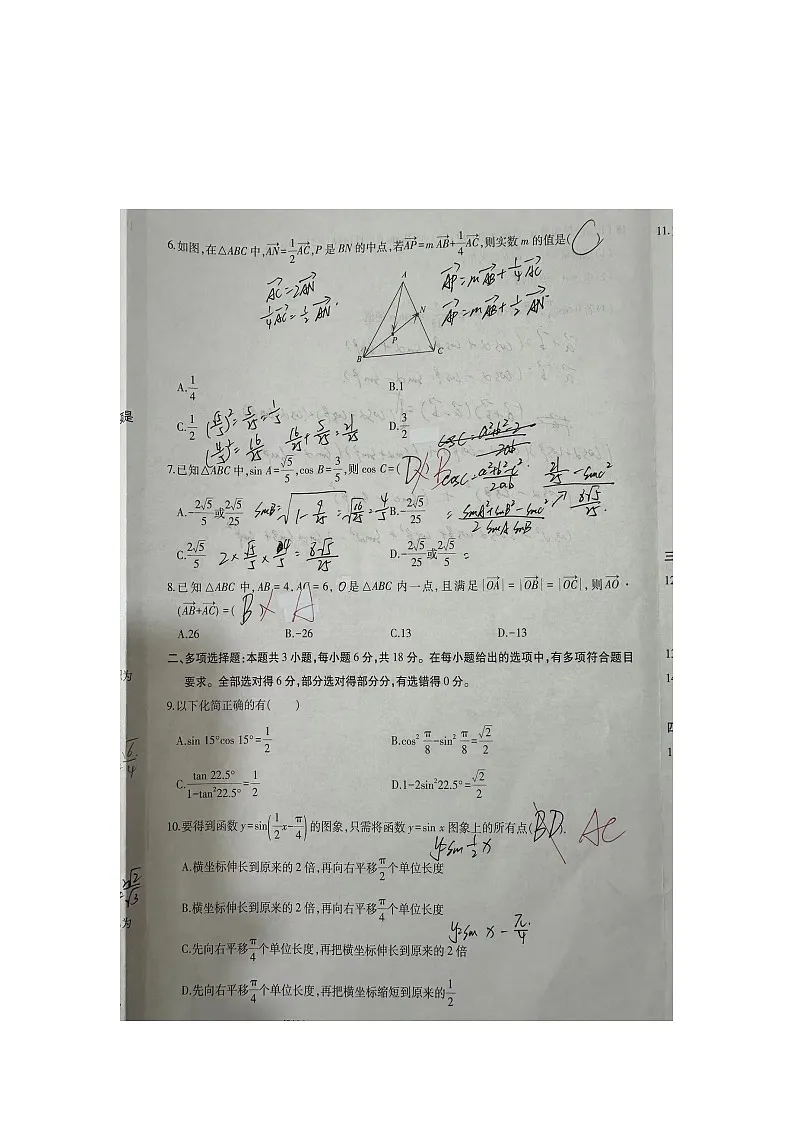 6.如图,在△ABC中,AN=1/2AC,P是BN的中点,若AP=mAB+1/4AC,则实数m的值是(C)
11.
AC=2AN
1/4AC=1/2AN
AP=mAB+1/4AC
AP=mAB+1/2AN
A
N
P
B
C
A.1/4
B.1
C.1/2
D.3/2
(√5/5)²=5/25=1/5
(4/5)²=16/25
16/25+5/25=21/25
cosC=a²+b²-2/2ab
7.已知△ABC中,sin A=√5/5,cos B=3/5,则cos C=(D) B
cosC=a²+b²-c²/2ab
21/25-sinc²
8√5/25
A.-2√5/5或2√5/25
B.-2√5/25
sinB=√1-9/25=√16/25=4/5
=sinA²+sinB²-sinc²/2sinAsinB
C.2√5/5
D.-2√5/25或2√5/5
2×√5/5×4/5=8√5/25
=
8.已知△ABC中,AB=4,AC=6,O是△ABC内一点,且满足|OA|=|OB|=|OC|,则AO·
(AB+AC)=(B) A
A.26
B.-26
C.13
D.-13
二、多项选择题:本题共3小题,每小题6分,共18分。在每小题给出的选项中,有多项符合题目
要求。全部选对得6分,部分选对得部分分,有选错得0分。
9.以下化简正确的有( )
A.sin 15°cos 15°=1/2
B.cos²π/8-sin²π/8=√2/2
C.tan 22.5°/1-tan²22.5°=1/2
D.1-2sin²22.5°=√2/2
10.要得到函数y=sin(1/2x-π/4)的图象,只需将函数y=sin x图象上的所有点(BD. AC
y=sin1/2x
A.横坐标伸长到原来的2倍,再向右平移π/2个单位长度
B.横坐标伸长到原来的2倍,再向右平移π/4个单位长度
y=sin x-π/4
C.先向右平移π/4个单位长度,再把横坐标伸长到原来的2倍
D.先向右平移π/4个单位长度,再把横坐标缩短到原来的1/2